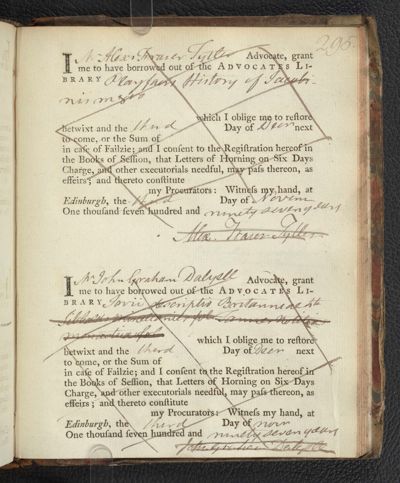 295.
I Mr Alexr Fraser Tytler Advocate, grant
me to have borrowed out of the ADVOCATES LI-
BRARY Playfairs History of Jacobi-
nism
which I oblige me to restore
betwixt and the third Day of Decer next
to come, or the Sum of
in case of Failzie; and I consent to the Registration hereof in
the Books of Session, that Letters of Horning on Six Days
Charge, and other executorials needful, may pass thereon, as
effeirs; and thereto constitute
my Procurators: Witness my hand, at
Edinburgh, the third Day of Novem
One thousand seven hundred and ninety seven years
Alexr Fraser Tytler
I Mr John Graham Dalyell Advocate, grant
me to have borrowed out of the ADVOCATES LI-
BRARY Jovii descriptio Britanniae
which I oblige me to restore
betwixt and the third Day of Decer next
to come, or the Sum of
in case of Failzie; and I consent to the Registration hereof in
the Books of Session, that Letters of Horning on Six Days
Charge, and other executorials needful, may pass thereon, as
effeirs; and thereto constitute
my Procurators: Witness my hand, at
Edinburgh, the third Day of Novr
One thousand seven hundred and ninety seven years
John Graham Dalyell